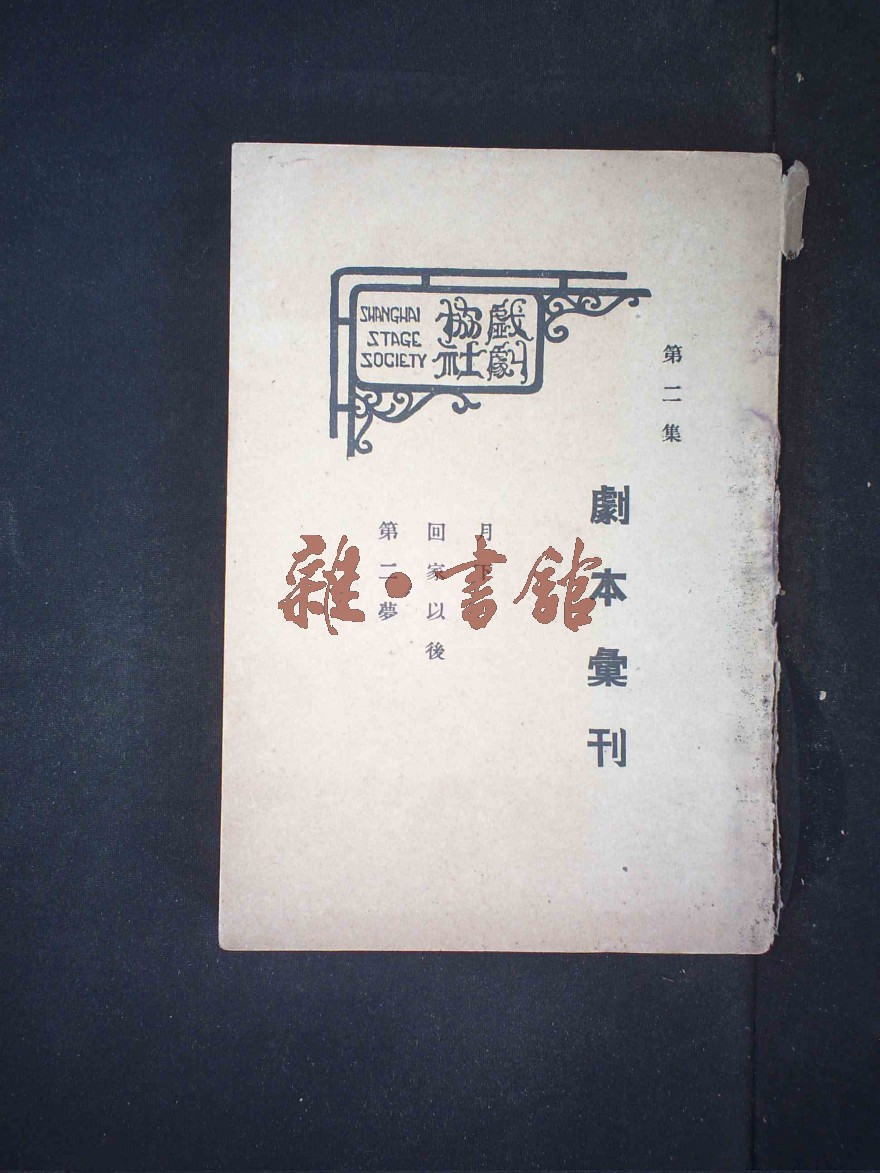 第二集
劇本彙刊
戲劇
協社
SHANGHAI
STAGE
SOCIETY
月下
回家以後
第二夢
雜·書館